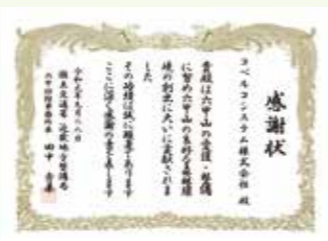 感謝状
コベルコシステム株式会社 殿
貴殿は六甲山の愛護・整備
に努め六甲山の良好な緑環
境の創出に大いに貢献されま
した
その功績は誠に顕著であります
ここに深く感謝の意を表します
国土交通省 近畿地方整備局
六甲砂防事務所長 田中